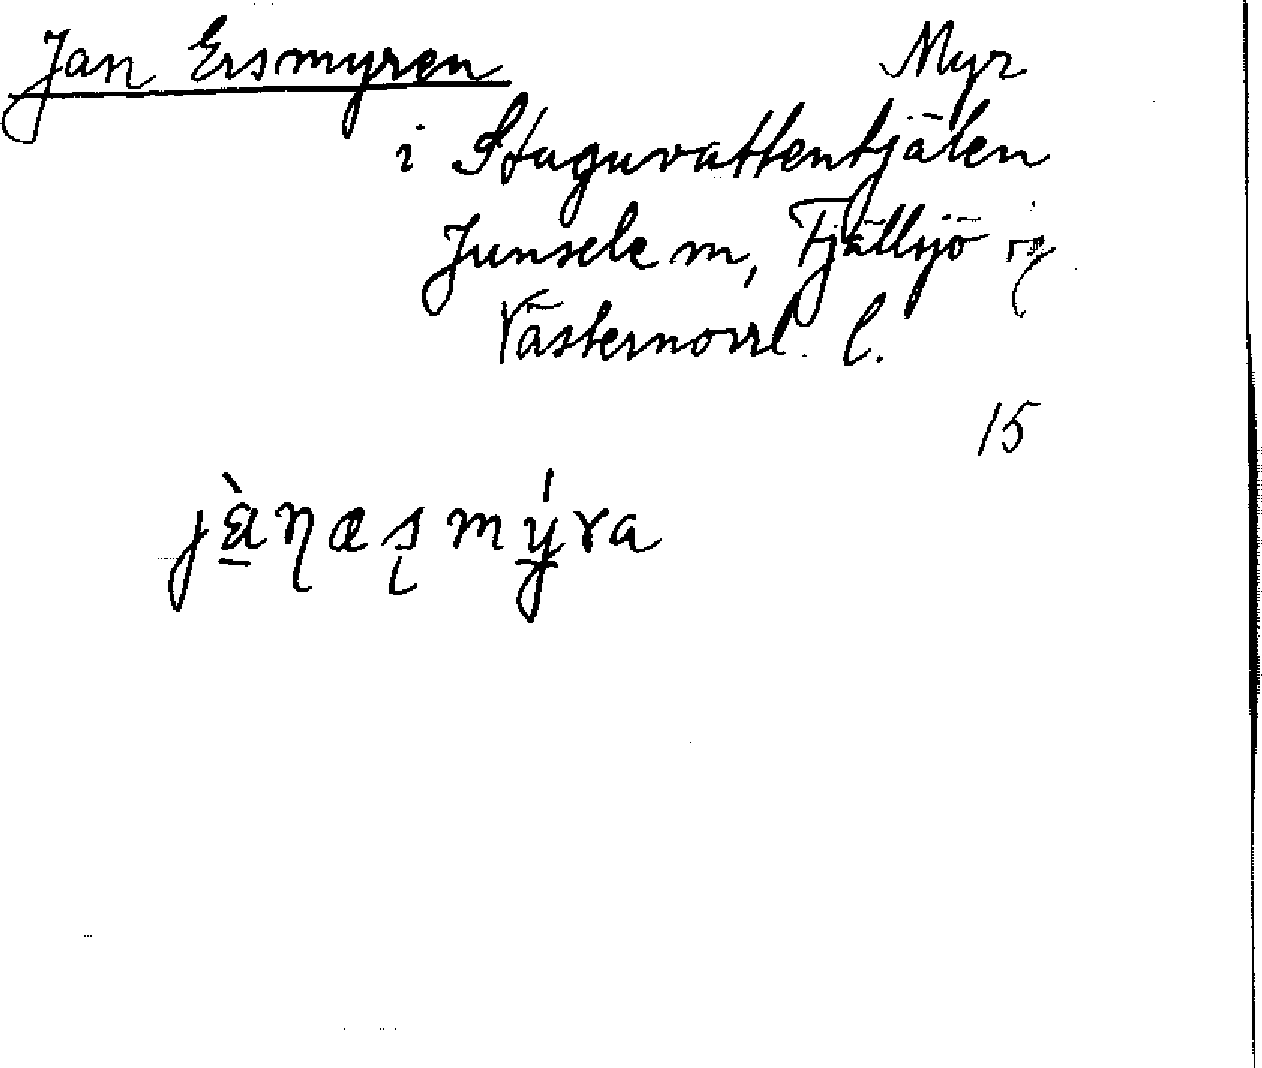 Jan Ersmyren Myr
i Staguvattentjälen
Junsele m, Fjällsjö
Västernorrl. l.
15